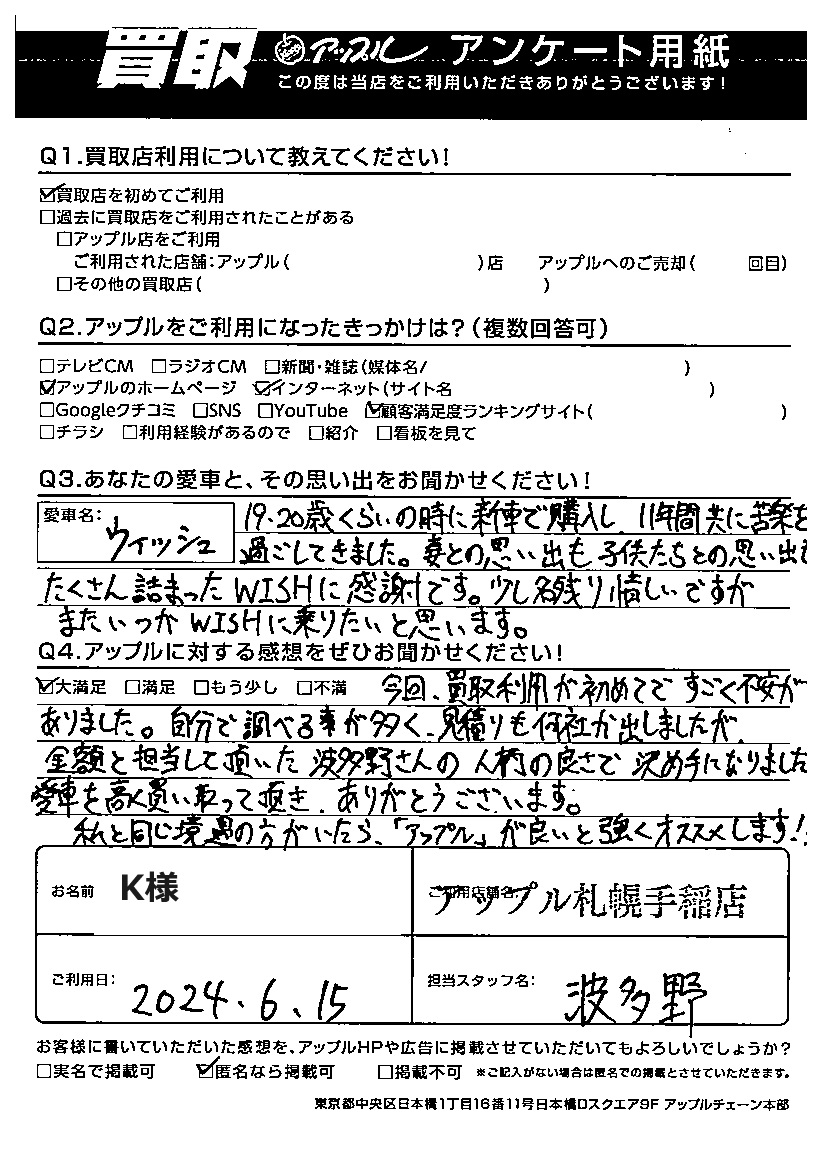 買取 アップル アンケート用紙
この度は当店をご利用いただきありがとうございます!
Q1.買取店利用について教えてください!
☑買取店を初めてご利用
□過去に買取店をご利用されたことがある
□アップル店をご利用
ご利用された店舗:アップル( )店 アップルへのご売却( 回目)
□その他の買取店( )
Q2.アップルをご利用になったきっかけは?(複数回答可)
□テレビCM □ラジオCM □新聞・雑誌(媒体名/ )
☑アップルのホームページ ☑インターネット(サイト名 )
□Googleクチコミ □SNS □YouTube ☑顧客満足度ランキングサイト( )
□チラシ □利用経験があるので □紹介 □看板を見て
Q3.あなたの愛車と、その思い出をお聞かせください!
愛車名: ウィッシュ
19・20歳くらいの時に新車で購入し、11年間共に苦楽を
過ごしてきました。妻との思い出も子供たちとの思い出も
たくさん詰まったWISHに感謝です。少し名残り惜しいですが
またいつかWISHに乗りたいと思います。
Q4.アップルに対する感想をぜひお聞かせください!
☑大満足 □満足 □もう少し □不満 今回、買取利用が初めてですごく不安が
ありました。自分で調べる事が多く、見積りも何社か出しましたが、
金額と担当して頂いた波多野さんの人柄の良さで決め手になりました
愛車を高く買い取って頂き、ありがとうございます。
私と同じ境遇の方がいたら、「アップル」が良いと強くオススメします!!
お名前 K様
ご利用店舗名: アップル札幌手稲店
ご利用日: 2024.6.15
担当スタッフ名: 波多野
お客様に書いていただいた感想を、アップルHPや広告に掲載させていただいてもよろしいでしょうか?
□実名で掲載可 ☑匿名なら掲載可 □掲載不可 ※ご記入がない場合は匿名での掲載とさせていただきます。
東京都中央区日本橋1丁目16番11号日本橋Dスクエア9F アップルチェーン本部